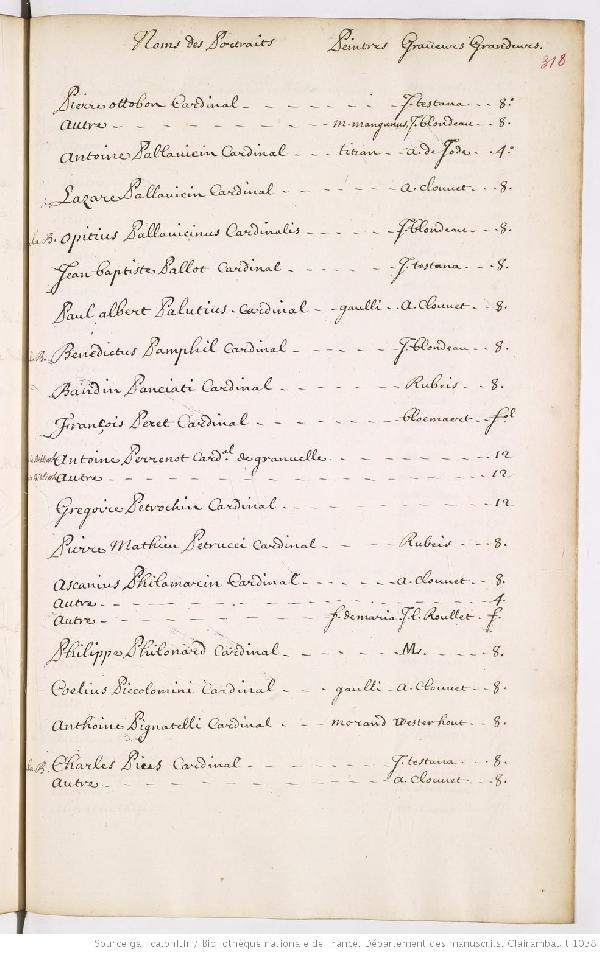 Noms des Portraits Peintres Graueurs Grandeurs.
318
Pierre ottobon Cardinal - - - - - - J. testana - - 8.°
autre - - - - - - - - m. manganus, J. blondeau - - 8.
Antoine Pallauicin Cardinal - - - titian - - a. de Jode - - 4.°
Lazare Pallauicin Cardinal - - - - - - a. clouuet - - 8.
opitius Pallauicinus Cardinalis - - - - - J. blondeau - - 8.
Jean baptiste Pallot Cardinal - - - - - - J. testana - - 8.
Paul albert Palutius. Cardinal - - gaulli - - a. Clouuet - - 8.
Benedictus Pamphil Cardinal - - - - - - J. blondeau - - 8.
Bandin Panciati Cardinal - - - - - - Rubeis - - 8.
François Peret Cardinal - - - - - - bloemaert - - fol
Antoine Perrenot Card.al de granuelle - - - - - - 12
autre - - - - - - - - - - 12
Gregoire Petrochin Cardinal - - - - - - - - 12
Pierre Mathieu Petrucci Cardinal - - - - Rubeis - - 8.
Ascanius Philamarin Cardinal - - - - - a. Clouuet - - 8.
autre - - - - - - - - - - 4.
autre - - - - - - f. de maria J. l. Roullet - - f.
Philippe Philonard Cardinal - - - - - - M. - - 8.
Coelius Piccolomini Cardinal - - - gaulli - a. Clouuet - - 8.
Anthoine Pignatelli Cardinal - - - morand Westerhout - - 8.
Charles Pi Cardinal - - - - - - J. testana - - 8.
autre - - - - - - - - a. Clouuet - - 8.
Source gallica.bnf.fr / Bibliothèque nationale de France. Département des manuscrits. Clairambault 1038